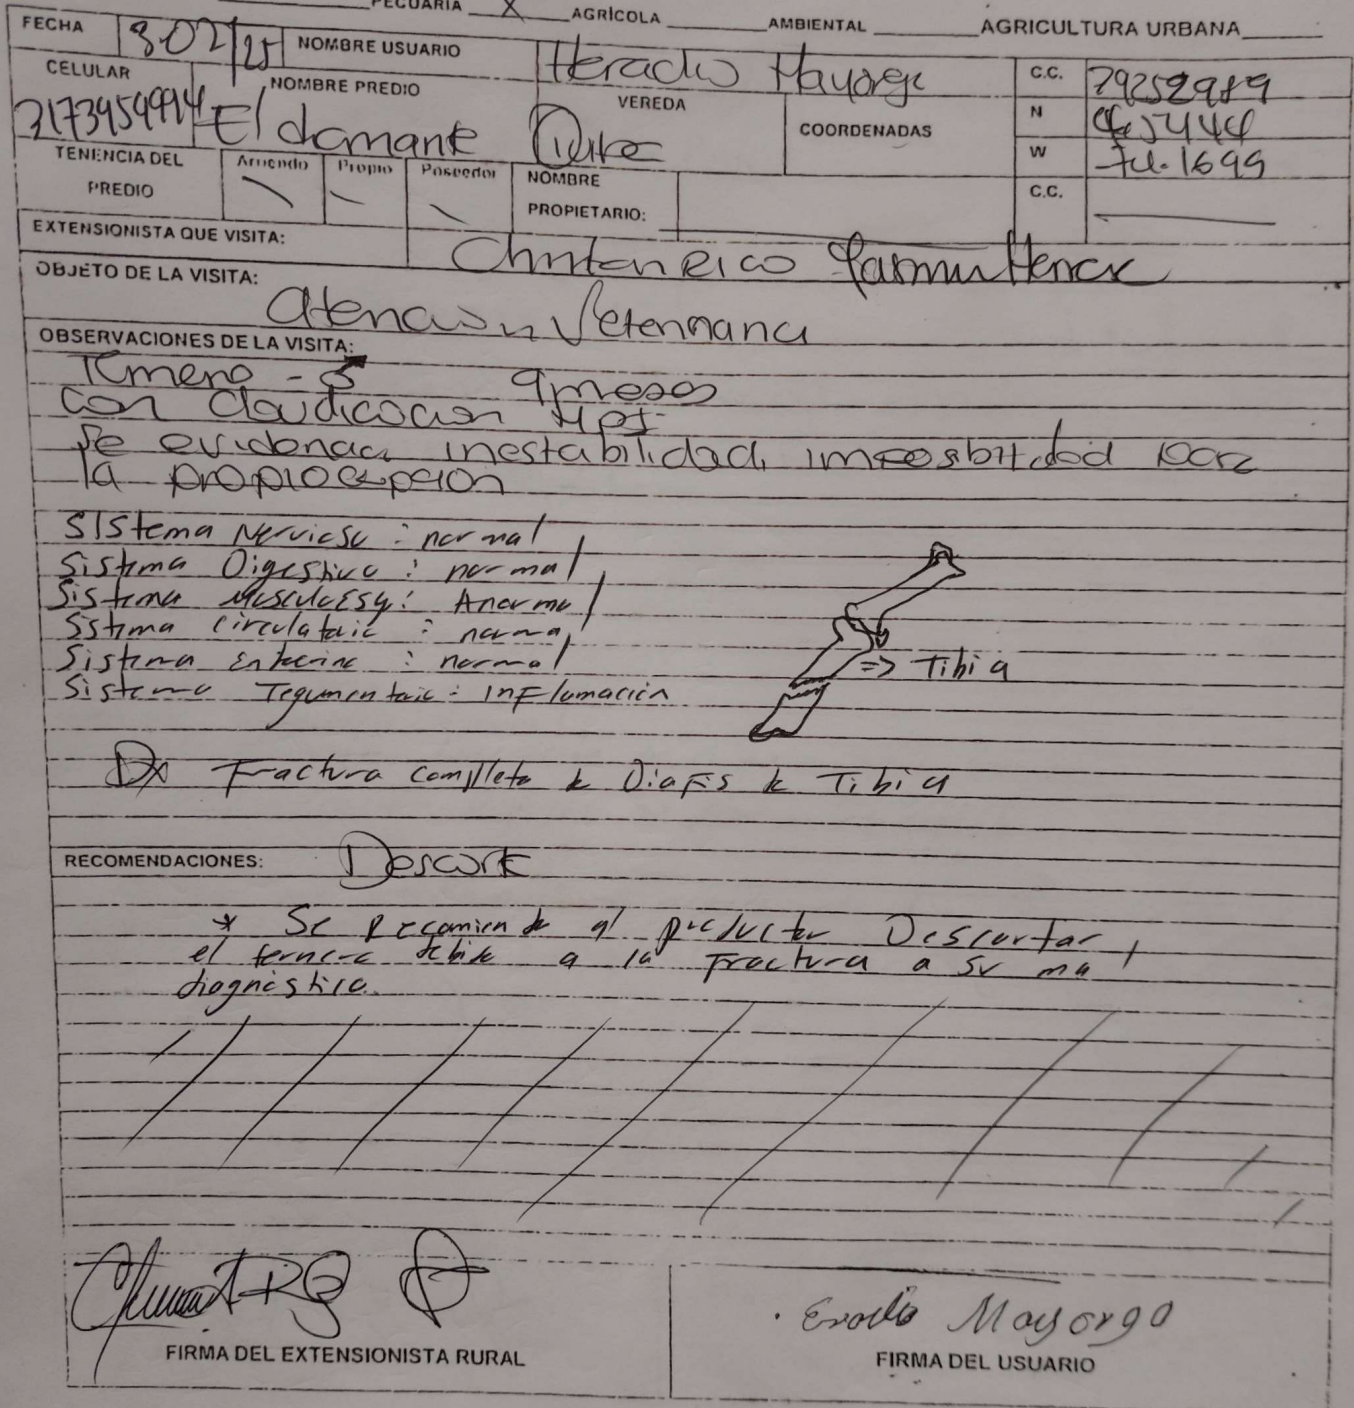 PECUARIA X AGRÍCOLA AMBIENTAL AGRICULTURA URBANA
FECHA 3-02/25 NOMBRE USUARIO Heraclio Mayorga C.C. 79252989
CELULAR NOMBRE PREDIO VEREDA COORDENADAS N
El diamante W
TENENCIA DEL PREDIO Arriendo Propio Poseedor NOMBRE PROPIETARIO: C.C.
EXTENSIONISTA QUE VISITA: Christian Rico
OBJETO DE LA VISITA:
atencion Veterinaria
OBSERVACIONES DE LA VISITA:
Ternero - ♂ 9 meses
con claudicacion MPI
Se evidencia inestabilidad, imposibilidad para
la propiocepcion
Sistema Nervioso : normal
Sistema Digestivo : normal
Sistema MusculoEsq: Anormal
Sistema Circulatorio : normal
Sistema Endocrino : normal
=> Tibia
Sistema Tegumentario : Inflamación
Dx Fractura Completa de Diafis de Tibia
RECOMENDACIONES: Descarte
* Se Recomienda al productor Descartar
el ternero debido a la Fractura a su mal
diagnóstico.
FIRMA DEL EXTENSIONISTA RURAL
Eraclio Mayorga
FIRMA DEL USUARIO